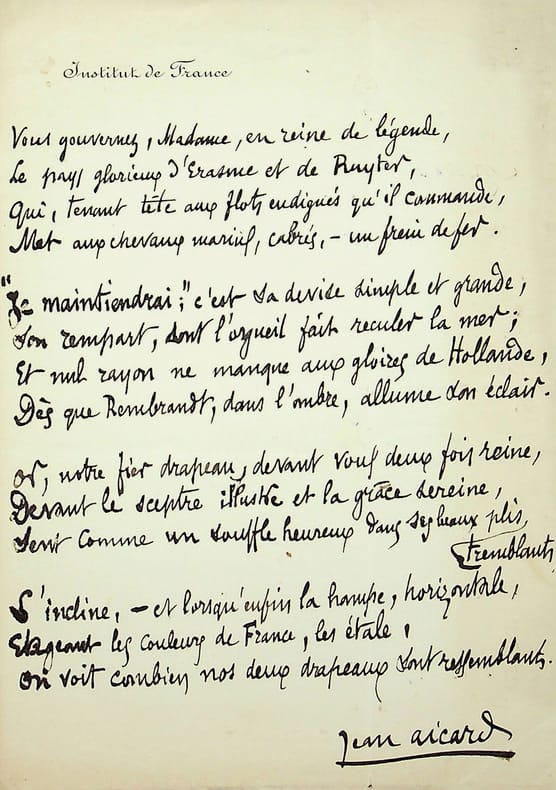 Institut de France
Vous gouvernez, Madame, en reine de légende,
Le pays glorieux d'Erasme et de Ruyter,
Qui, tenant tête aux flots endigués qu'il commande,
Met aux chevaux marins, cabrés, – un frein de fer.
"Je maintiendrai", c'est sa devise simple et grande,
Son rempart, dont l'orgueil fait reculer la mer ;
Et nul rayon ne manque aux gloires de Hollande,
Dès que Rembrandt, dans l'ombre, allume son éclair.
Or, notre fier drapeau, devant vous deux fois reine,
Devant le sceptre illustre et la grâce sereine,
Sent comme un souffle heureux dans ses beaux plis
tremblants
S'incline, – et lorsqu'enfin la hampe, horizontale,
Etageant les couleurs de France, les étale,
On voit combien nos deux drapeaux sont ressemblants.
Jean Aicard